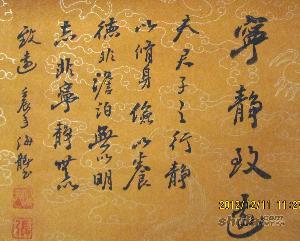 寧靜致遠
夫君子之行靜
以脩身儉以養
德非澹泊無以明
志非寧靜無以
致遠
2012/12/11 11:2